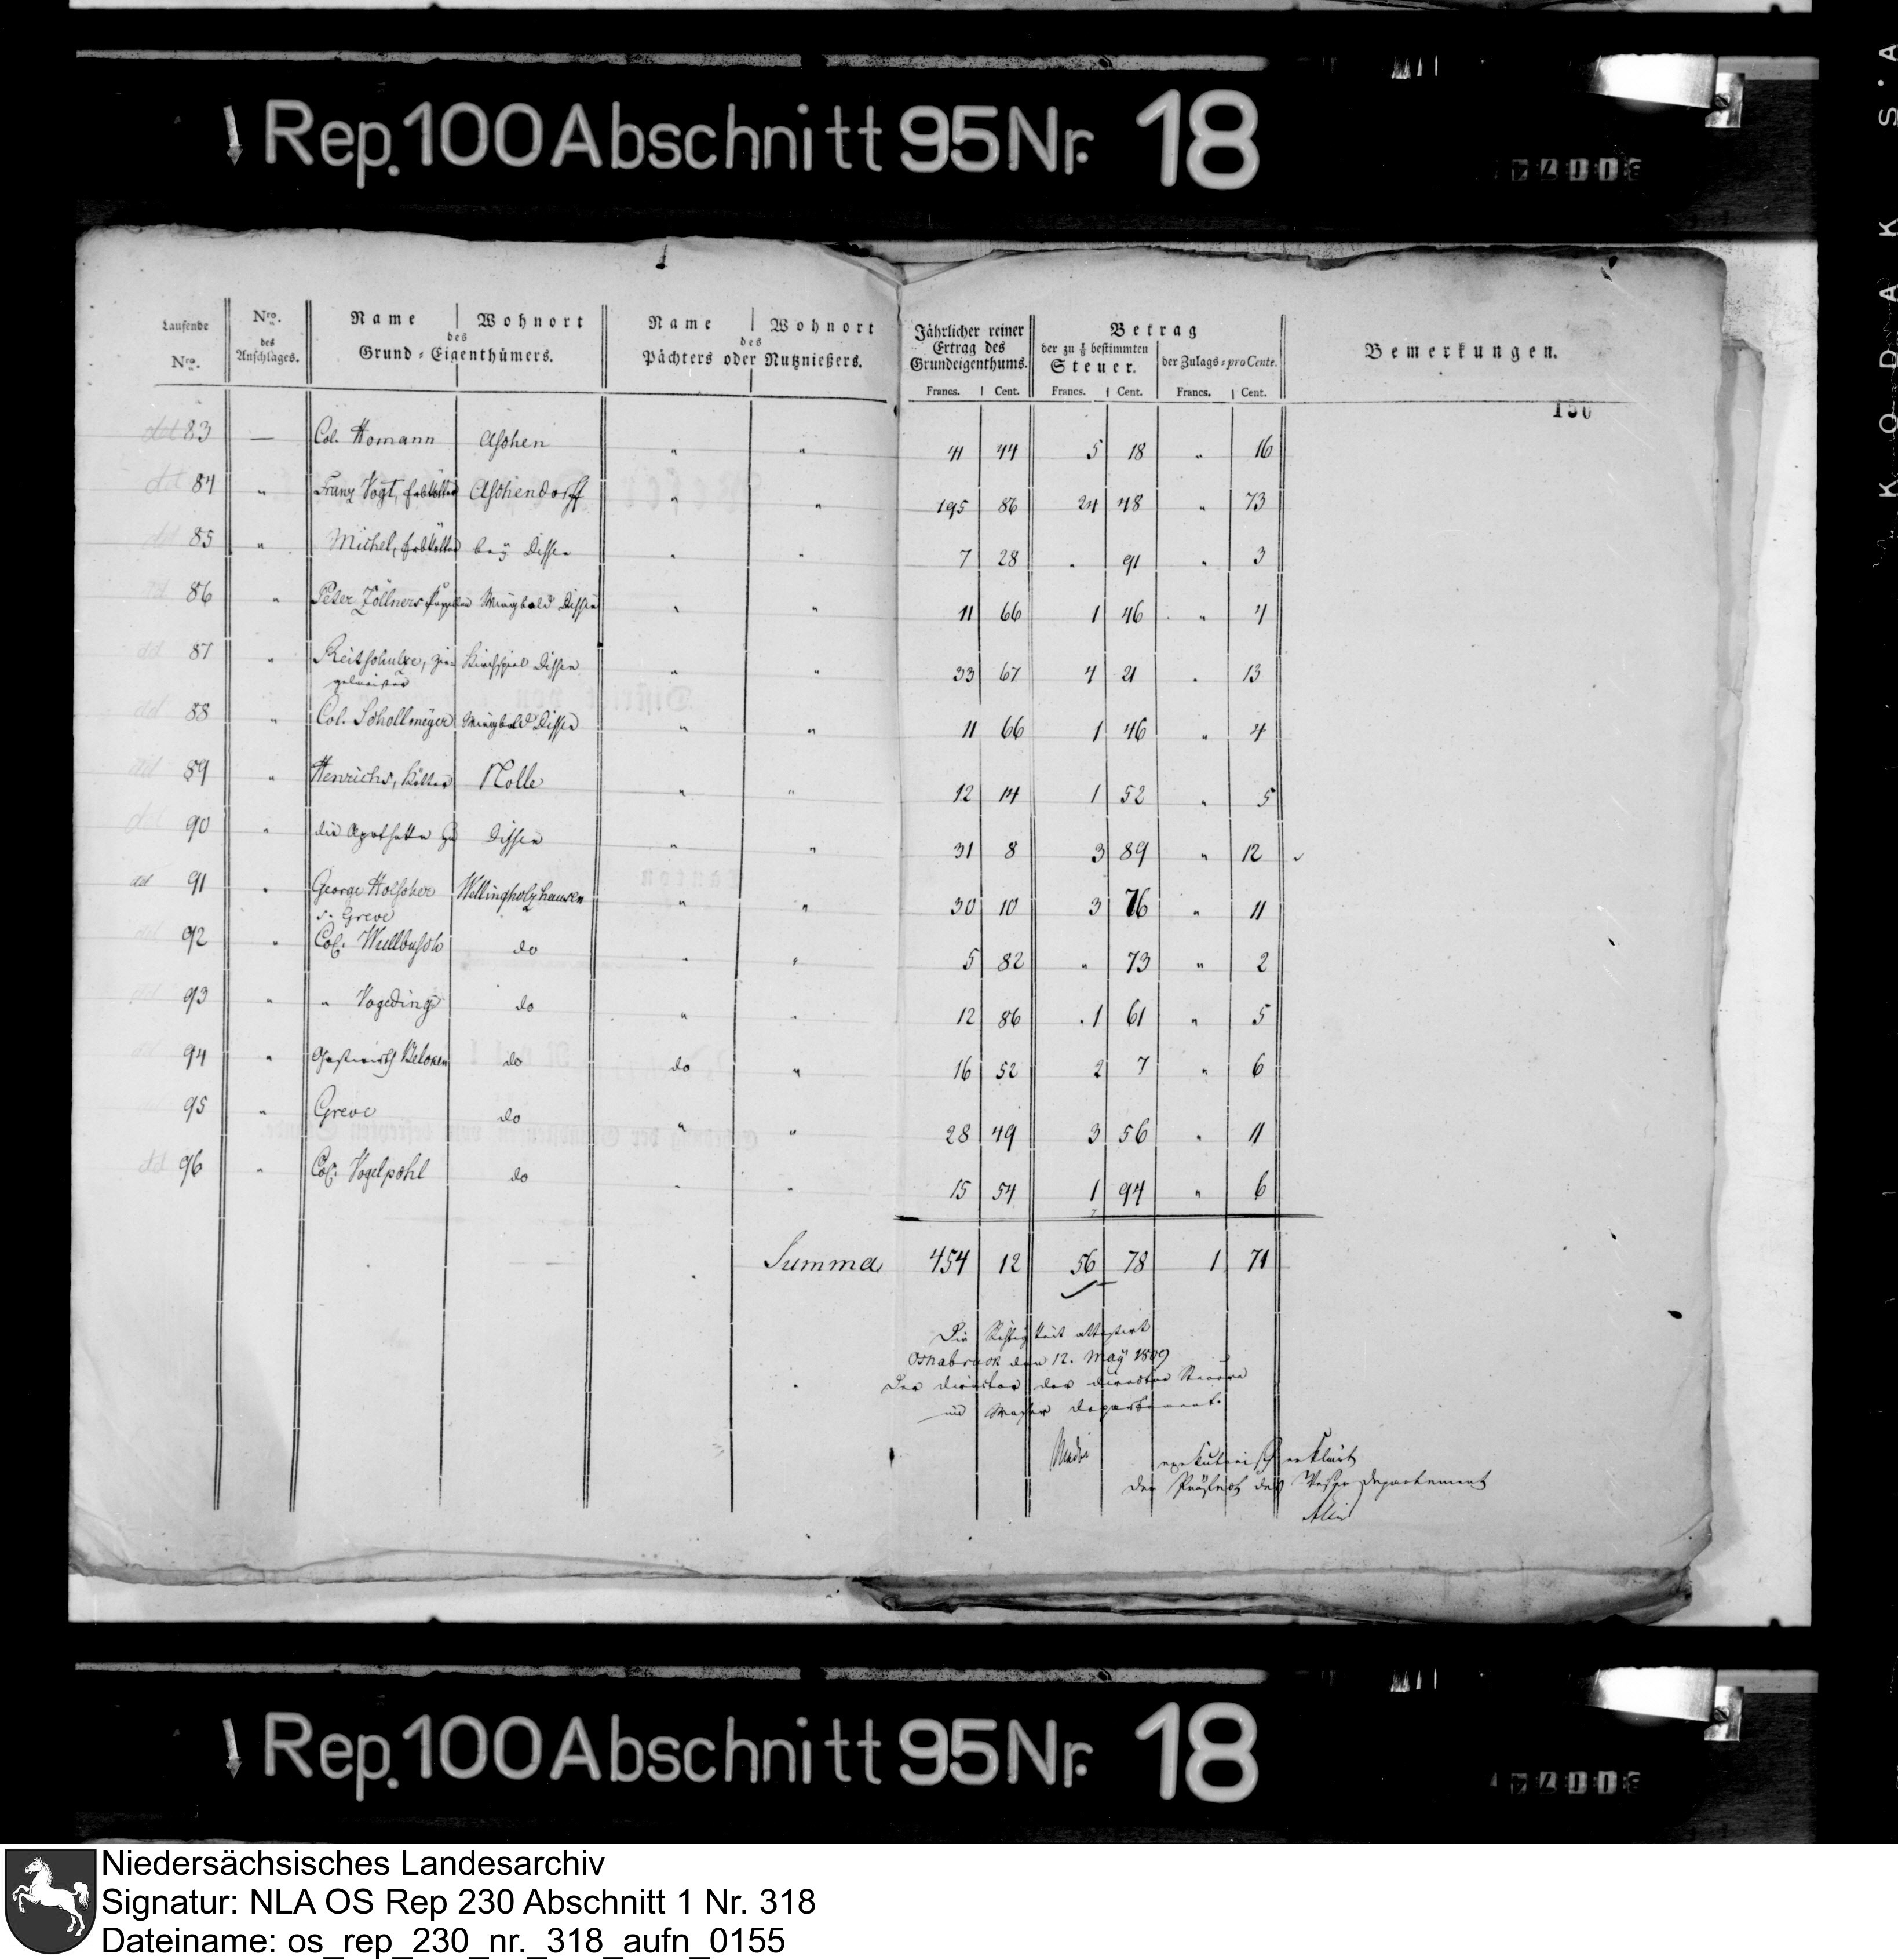 Rep. 100 Abschnitt 95 Nr. 18
KODAK S.A
Laufende Nro. | Nro. des Anschlages. | Name | Wohnort des Grund-Eigenthümers. | Name | Wohnort des Pächters oder Nutznießers. | Jährlicher reiner Ertrag des Grundeigenthums. | Betrag der zu ⅛ bestimmten Steuer. | der Zulags-pro Cente. | Bemerkungen.
Francs. | Cent. | Francs. | Cent. | Francs. | Cent.
150
83 — Col. Homann Aschen " " 41 44 5 18 " 16
84 " Franz Vogt, Erbkötter Aschendorff " " 195 86 24 48 " 73
85 " Michel, Erbkötter bey Dissen " " 7 28 " 91 " 3
86 " Peter Zöllners Wiegbold Dissen " " 11 66 1 46 " 4
87 " Reitschulze, Zie- Kirchspiel Dissen " " 33 67 4 21 " 13
gelmeister
88 " Col. Schollmeyer Wiegbold Dissen " " 11 66 1 46 " 4
89 " Henrichs, Kötter Nolle " " 12 14 1 52 " 5
90 " die Apotheke zu Dissen " " 31 8 3 89 " 12
91 " George Holscher Wellingholzhausen " " 30 10 3 76 " 11
s. Greve
92 " Col. Wullbusch do " " 5 82 " 73 " 2
93 " " Vogeding do " " 12 86 1 61 " 5
94 " Gastwirth do do " 16 52 2 7 " 6
95 " Greve do " " 28 49 3 56 " 11
96 " Col. Vogelpohl do " " 15 54 1 94 " 6
Summa 454 12 56 78 1 71
Die Richtigkeit attestirt
Osnabruck den 12. May 1809
Der Director der directen Steuern
im Weser Departement.
exekutorisch erklärt
Der Präfect des Weser Departement
Rep. 100 Abschnitt 95 Nr. 18
Niedersächsisches Landesarchiv
Signatur: NLA OS Rep 230 Abschnitt 1 Nr. 318
Dateiname: os_rep_230_nr._318_aufn_0155